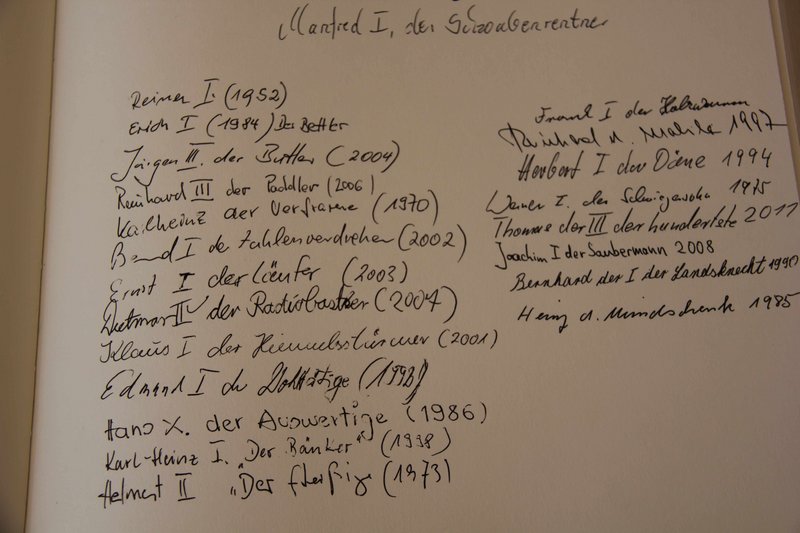 Manfred I, der
Reiner I. (1952)
Erich I (1984) Der Bettler
Jürgen III. der Butler (2004)
Reinhard III der Paddler (2006)
Karlheinz der Verfrorene (1970)
Bernd I der Zahlenverdreher (2002)
Ernst I der Läufer (2003)
Dietmar II der Radiobastler (2007)
Klaus I der Himmelsstürmer (2001)
Edmund I der
Hans X. der Auswertige (1986)
Karl-Heinz I. "Der Bänker" (1998)
Helmut II "Der fleißige (1973)
Frank I der
Reinhard d. 1997
Herbert I der Däne 1994
Werner I. der 1975
Thomas der III der hunderteste 2011
Joachim I der Saubermann 2008
Bernhard der I der Landsknecht 1990
Heinz d. Mundschenk 1985